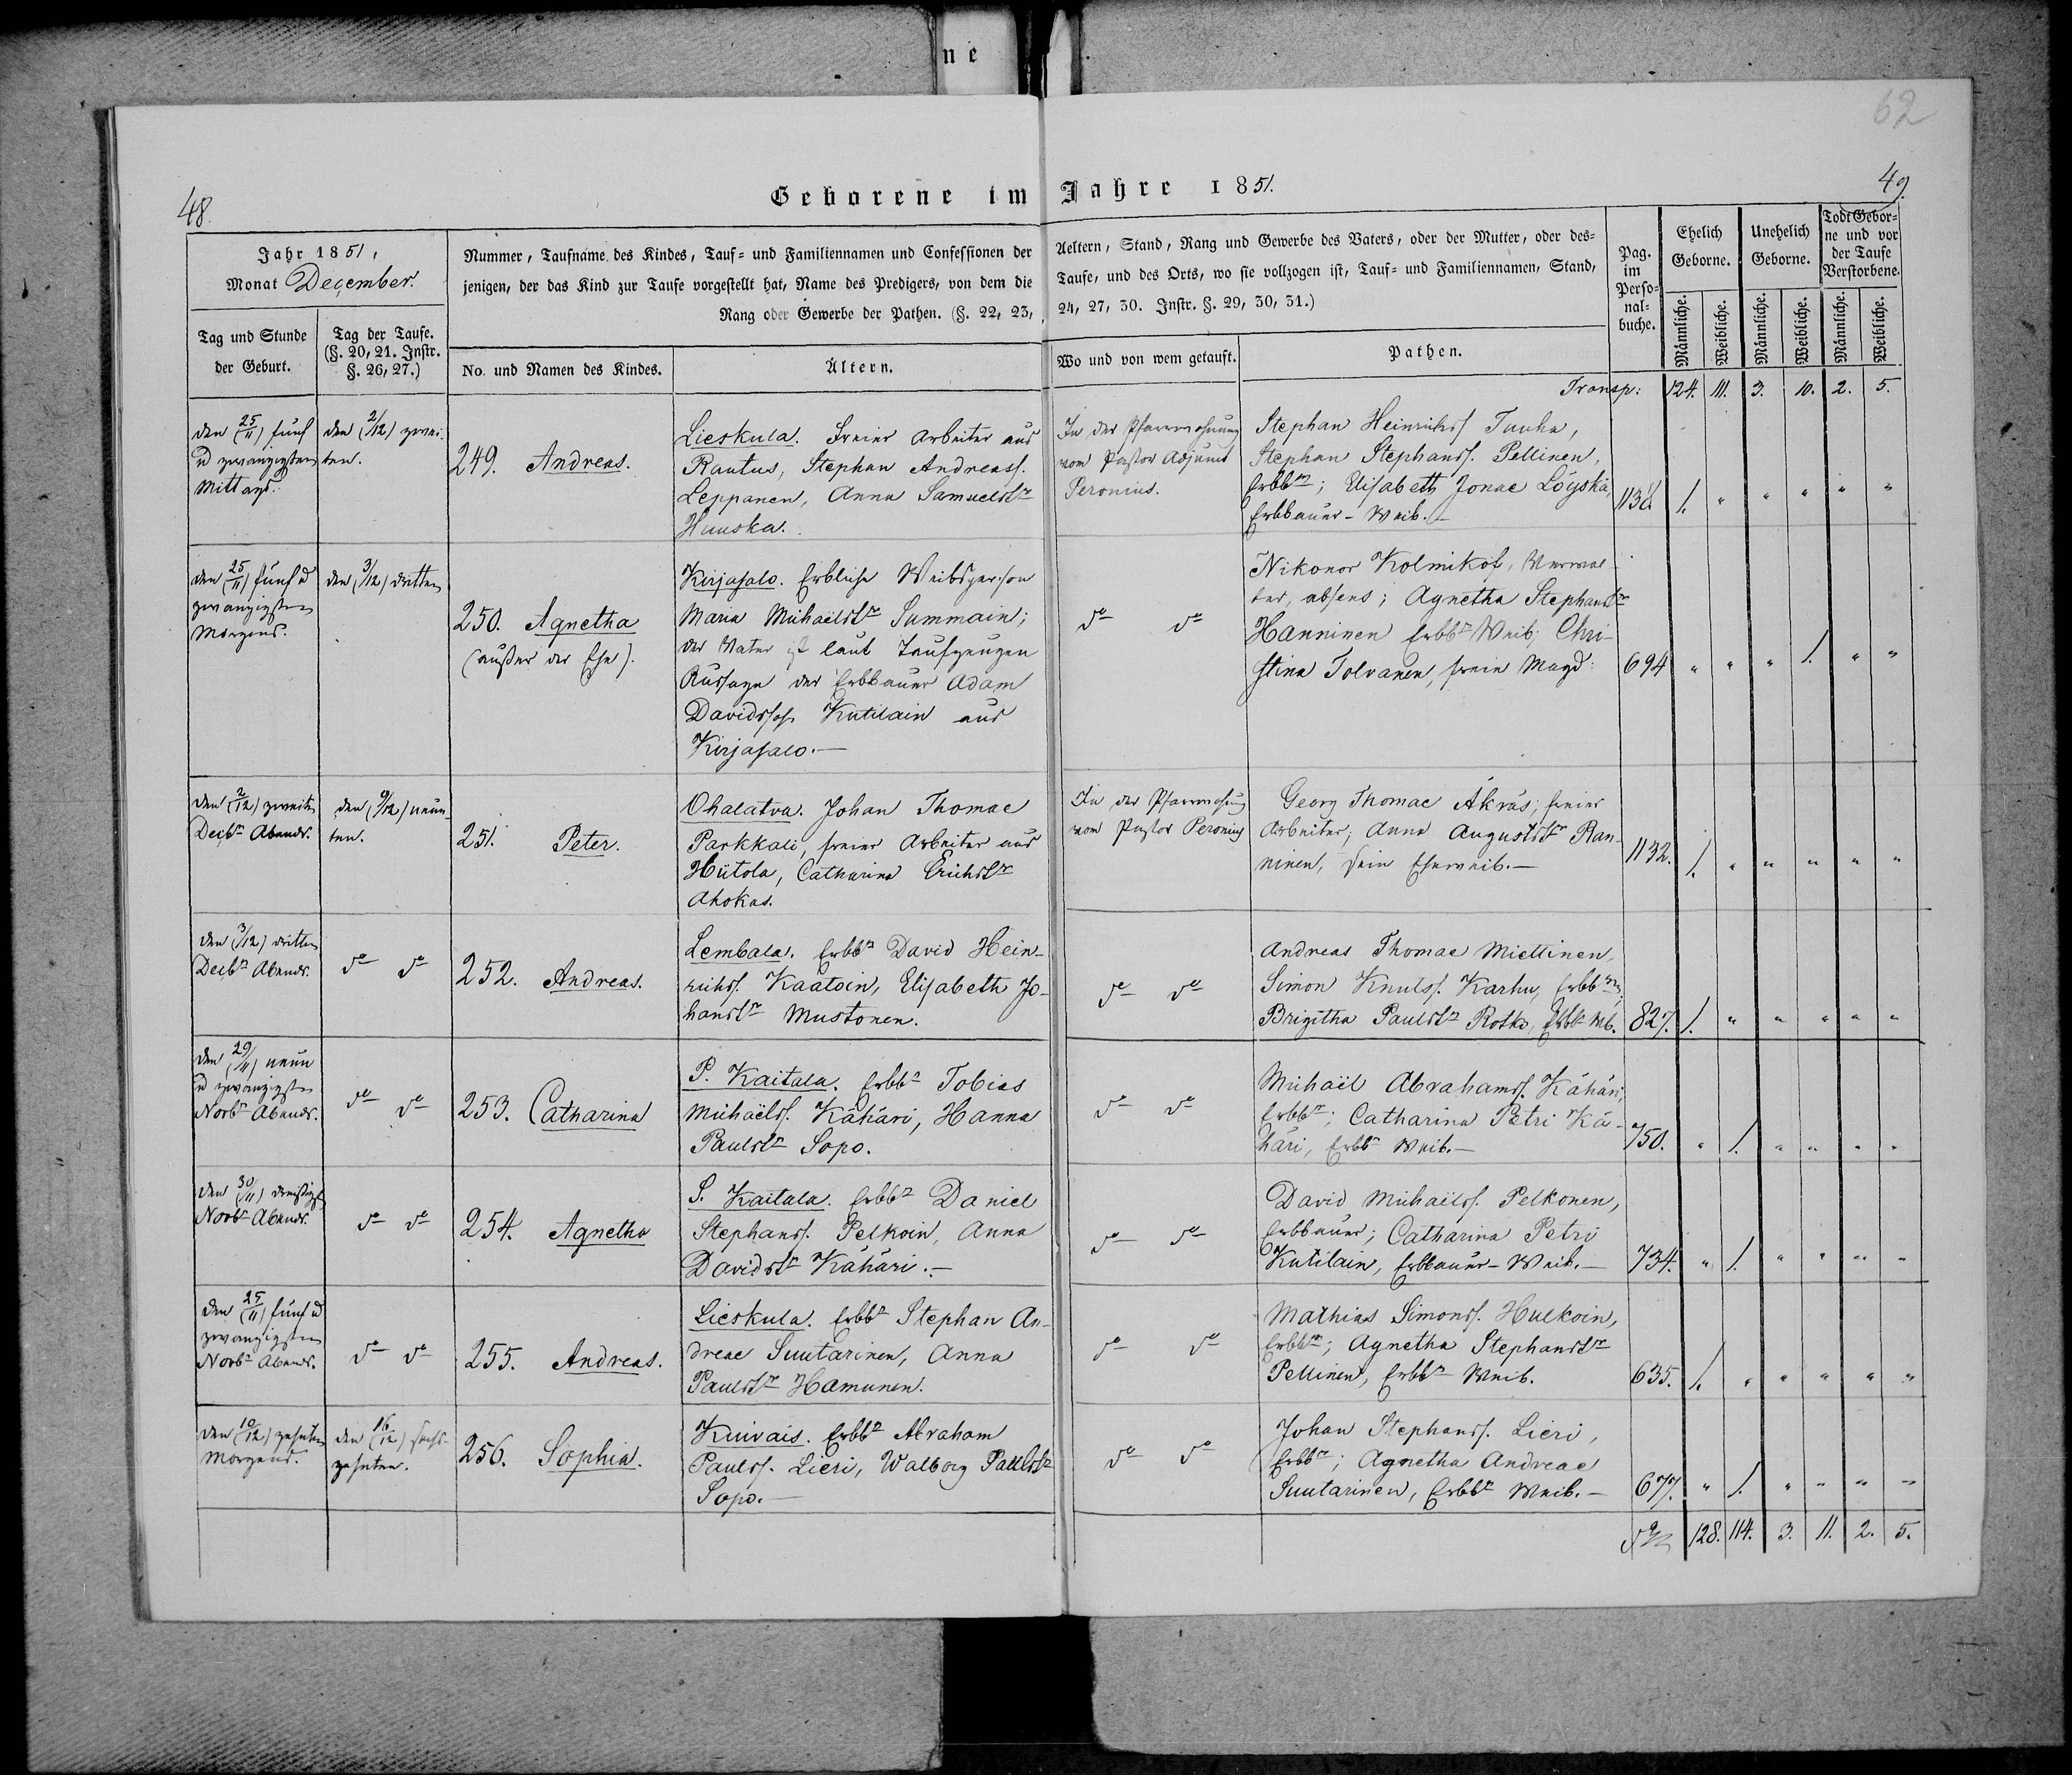 ne
62
48.
49.
Geborene im Jahre 1851.
Jahr 1851,
Monat December.
Nummer, Taufname des Kindes, Tauf- und Familiennamen und Confessionen der
jenigen, der das Kind zur Taufe vorgestellt hat, Name des Predigers, von dem die
Rang oder Gewerbe der Pathen. (§. 22, 23,
Aeltern, Stand, Rang und Gewerbe des Vaters, oder der Mutter, oder des=
Taufe, und des Orts, wo sie vollzogen ist, Tauf= und Familiennamen, Stand,
24, 27, 30. Instr. §. 29, 30, 31.)
Pag.
im
Perso=
nal=
buche.
Ehelich
Geborne.
Unehelich
Geborne.
Todt Gebor=
ne und vor
der Taufe
Verstorbene.
Männliche.
Weibliche.
Männliche.
Weibliche.
Männliche.
Weibliche.
Tag und Stunde
der Geburt.
Tag der Taufe.
(§. 20, 21. Instr.
§. 26, 27.)
No. und Namen des Kindes.
Ältern.
Wo und von wem getauft.
Pathen.
Transp: 124. 111. 3. 10. 2. 5.
den (25/11) fünf
u zwanzigsten
Mittags.
den (2/12) zwei-
ten.
249. Andreas.
Lieskula. Freier Arbeiter aus
Rautus, Stephan Andreass.
Leppanen, Anna Samuelstr
Huuska.
In der Pfarrwohnung
vom Pastor Adjunct
Peronius.
Stephan Heinrichs Tuuha,
Stephan Stephanss. Pellinen,
Erbbrn; Elisabeth Jonae Löyskä,
Erbbauer-Weib.—
1138. 1. " " " " "
den (25/11) fünf u
zwanzigsten
Morgens.
den (3/12) dritten
250. Agnetha
(außer der Ehe).
Kirjasalo. Erbliche Weibsperson
Maria Michaëlstr Summain;
der Vater ist laut Taufzeugen
Aussage der Erbbauer Adam
Davidssohn Kutilain aus
Kirjasalo.—
do do
Nikonor Kolmikof, Verwal-
ter, absens; Agnetha Stephanstr
Hanninen Erbbr Weib; Chri-
stina Tolvanen, freie Magd.
694 " " " 1. " "
den (2/12) zweiten
Decbr Abends.
den (9/12) neun-
ten.
251. Peter.
Ohalatva. Johan Thomae
Parkkali, freier Arbeiter aus
Hiitola, Catharina Erichstr
Ahokas.
In der Pfarrwohnung
vom Pastor Peronius
Georg Thomae Äkräs, freier
Arbeiter; Anna Auguststr Ran-
ninen, sein Eheweib.—
1132. 1. " " " " "
den (3/12) dritten
Decbr Abends.
do do
252. Andreas.
Lembala. Erbbr David Hein-
richs. Kaatoin, Elisabeth Jo-
hanstr Mustonen.
do do
Andreas Thomae Miettinen,
Simon Knuts. Karhu, Erbbrn;
Brigitha Paulstr Rotko, Erbbr Wb.
827. 1. " " " " "
den (29/11) neun
u zwanzigsten
Novbr Abends.
do do
253. Catharina
P. Kaitala. Erbbr Tobias
Michaëls. Kähäri, Hanna
Paulstr Sopo.
do do
Michaël Abrahams. Kähäri,
Erbbr; Catharina Petri Kä-
häri, Erbbr Weib.—
750. " 1. " " " "
den (30/11) dreißigsten
Novbr Abends.
do do
254. Agnetha
S. Kaitala. Erbbr Daniel
Stephans. Pelkoin, Anna
Davidstr Kähäri.—
do do
David Michaëls. Pelkonen,
Erbbauer; Catharina Petri
Kutilain, Erbbauer-Weib.—
734. " 1. " " " "
den (25/11) fünf u
zwanzigsten
Novbr Abends.
do do
255. Andreas.
Lieskula. Erbbr Stephan An-
dreae Suutarinen, Anna
Paulstr Hamunen.
do do
Mathias Simons. Hulkoin,
Erbbr; Agnetha Stephanstr
Pellinen, Erbbr Weib.
635. 1. " " " " "
den (10/12) zehnten
Morgens.
den (16/12) sechs-
zehnten.
256. Sophia.
Kuivais. Erbbr Abraham
Pauls. Lieri, Walborg Paulstr
Sopo.—
do do
Johan Stephans. Lieri,
Erbbr; Agnetha Andreae
Suutarinen, Erbbr Weib.—
677. " 1. " " " "
128. 114. 3. 11. 2. 5.